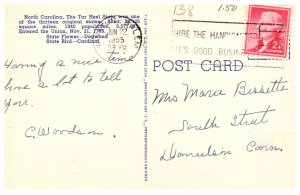 North Carolina, The Tar Heel State, was one
of the thirteen original states.
square miles. 1940 population,
Entered the Union, Nov. 21, 1789.
State Flower—Dogwood
State Bird—Cardinal
Having a nice time
have a lot to tell
you.
C. Woodson
138
1.50
JUN 22
1955
HIRE THE HANDICAPPED
IT'S GOOD BUSINESS
2¢
POST CARD
Mrs Marie Bissette
South Street
Danielson Conn.